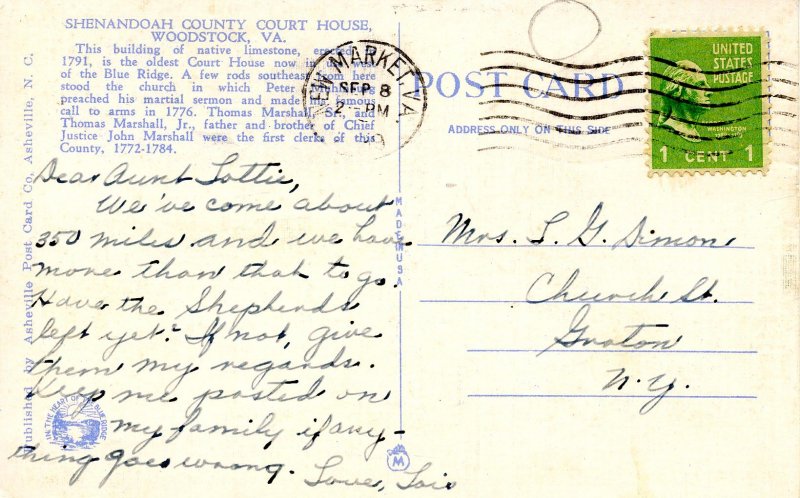 SHENANDOAH COUNTY COURT HOUSE,
WOODSTOCK, VA.
This building of native limestone, erected
1791, is the oldest Court House now in use west
of the Blue Ridge. A few rods southeast from here
stood the church in which Peter
preached his martial sermon and made his famous
call to arms in 1776. Thomas Marshall, Sr. and
Thomas Marshall, Jr., father and brother of Chief
Justice John Marshall were the first clerks of this
County, 1772-1784.
MARKET, VA
SEP 8
PM
POST CARD
ADDRESS ONLY ON THIS SIDE
UNITED
STATES
POSTAGE
WASHINGTON
1 CENT 1
Published by Asheville Post Card Co., Asheville, N. C.
MADE IN USA
Dear Aunt Lottie,
We've come about
350 miles and we have
more than that to go.
Have the Shepherds
left yet? If not, give
them my regards.
Keep me posted on
my family if any-
thing goes wrong. Love, Lois
Mrs. L. G. Dimon
Church St.
Groton
N.Y.
IN THE HEART OF THE BLUE RIDGE
M